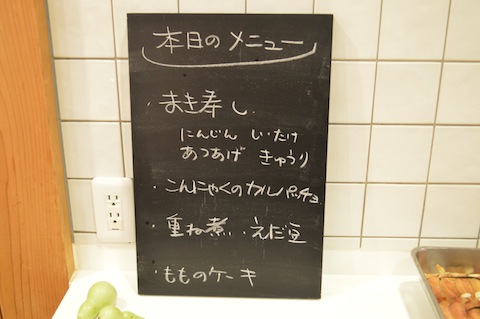 本日のメニュー
・まき寿し
にんじん しいたけ
あつあげ きゅうり
・こんにゃくのカルパッチョ
・重ね煮 ・えだ豆
・もものケーキ